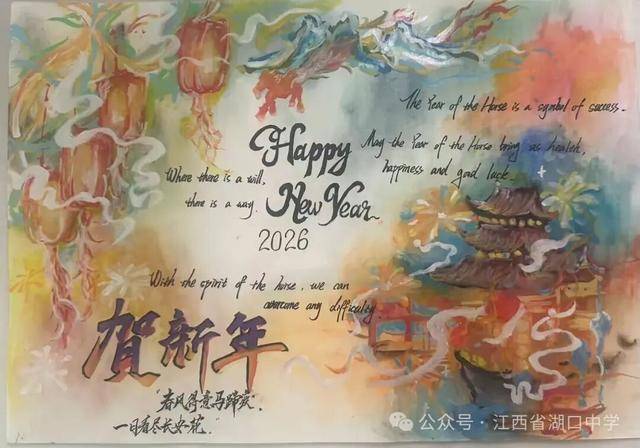 The Year of the Horse is a symbol of success.
Happy
New Year
2026
May the Year of the Horse bring us health,
happiness and good luck
Where there is a will,
there is a way.
With the spirit of the horse, we can
overcome any difficulty.
贺新年
"春风得意马蹄疾,
一日看尽长安花."
公众号·江西省湖口中学